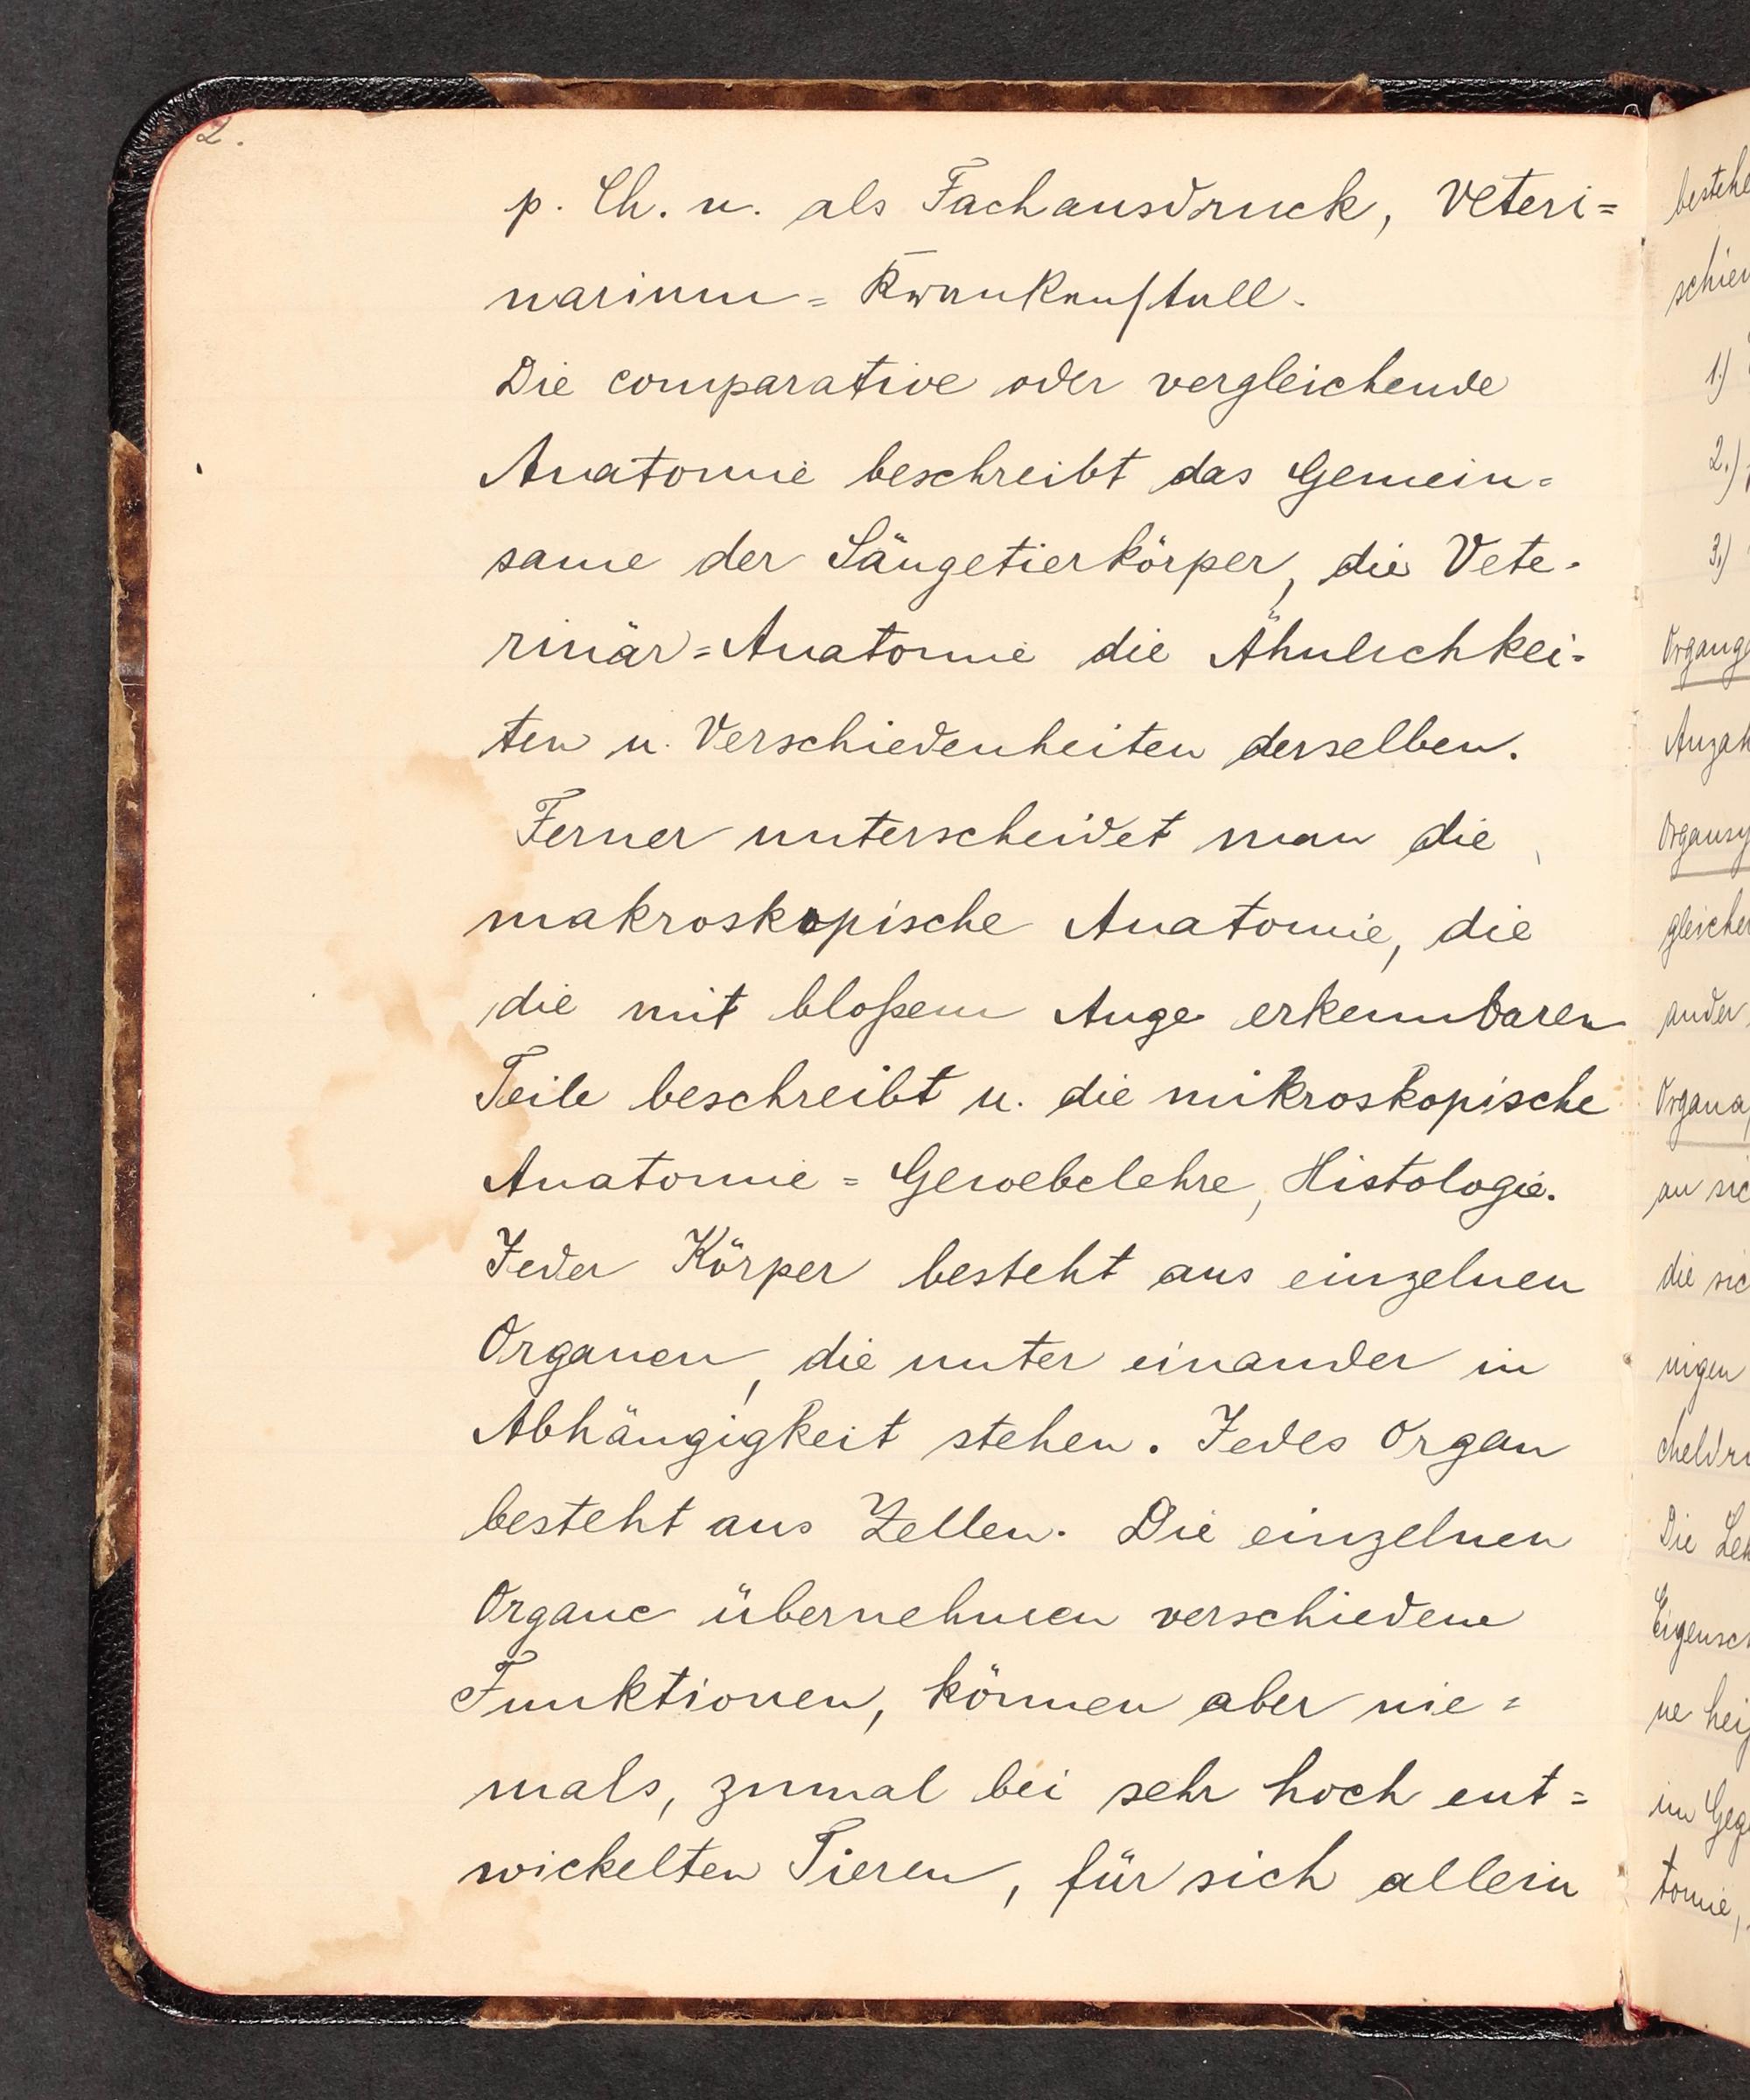 2.
p. Ch. n. als Fachausdruck, Veteri=
narium = Krankenstall.
Die comparative oder vergleichende
Anatomie beschreibt das Gemein=
same der Säugetierkörper, die Vete-
rinär=Anatomie die Ähnlichkei-
ten u. Verschiedenheiten derselben.
Ferner unterscheidet man die
makroskopische Anatomie, die
die mit bloßem Auge erkennbaren
Teile beschreibt u. die mikroskopische
Anatomie = Gewebelehre, Histologie.
Jeder Körper besteht aus einzelnen
Organen, die unter einander in
Abhängigkeit stehen. Jedes Organ
besteht aus Zellen. Die einzelnen
Organe übernehmen verschiedene
Funktionen, können aber nie=
mals, zumal bei sehr hoch ent=
wickelten Tieren, für sich allein
bestehe
schien
1.)
2.)
3.)
Organge
Anzah
Organsy
gleicher
ander
Organa
an sic
die sic
nigen
Die Leh
Eigensch
ne
im Geg
tomie,